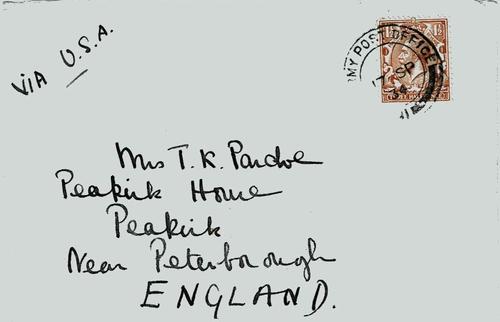 VIA U.S.A.
ARMY POST OFFICE
17 SP
34
1½
Mrs T. K. Pardoe
Peakirk House
Peakirk
Near Peterborough
ENGLAND.